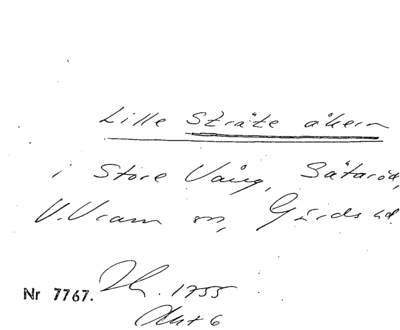 Lille Sträte åkern
i Store Vång, Sätaröd,
V. Vram sn, Gärds hd.
Nr 7767. 1755
Akt 6